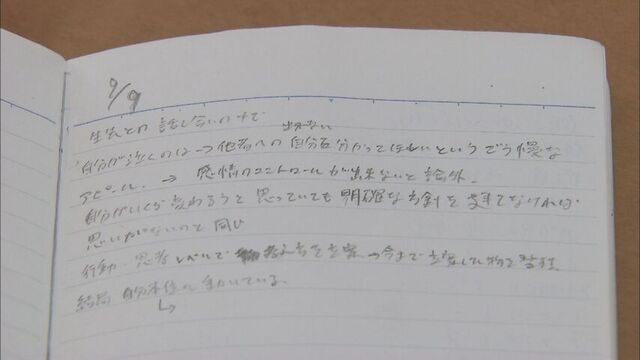 9/9
生長との話し合いの中で
出来ない
自分が泣くのは→他者への自分を分かってほしいというごう慢な
アピール. → 感情のコントロールが出来ないと論外.
自分がいくら変わろうと思っていても明確な方針を立てなければ
思いがないのと同じ
行動、思考レベルで の今まで
結局 自分本位に動いている.
↳